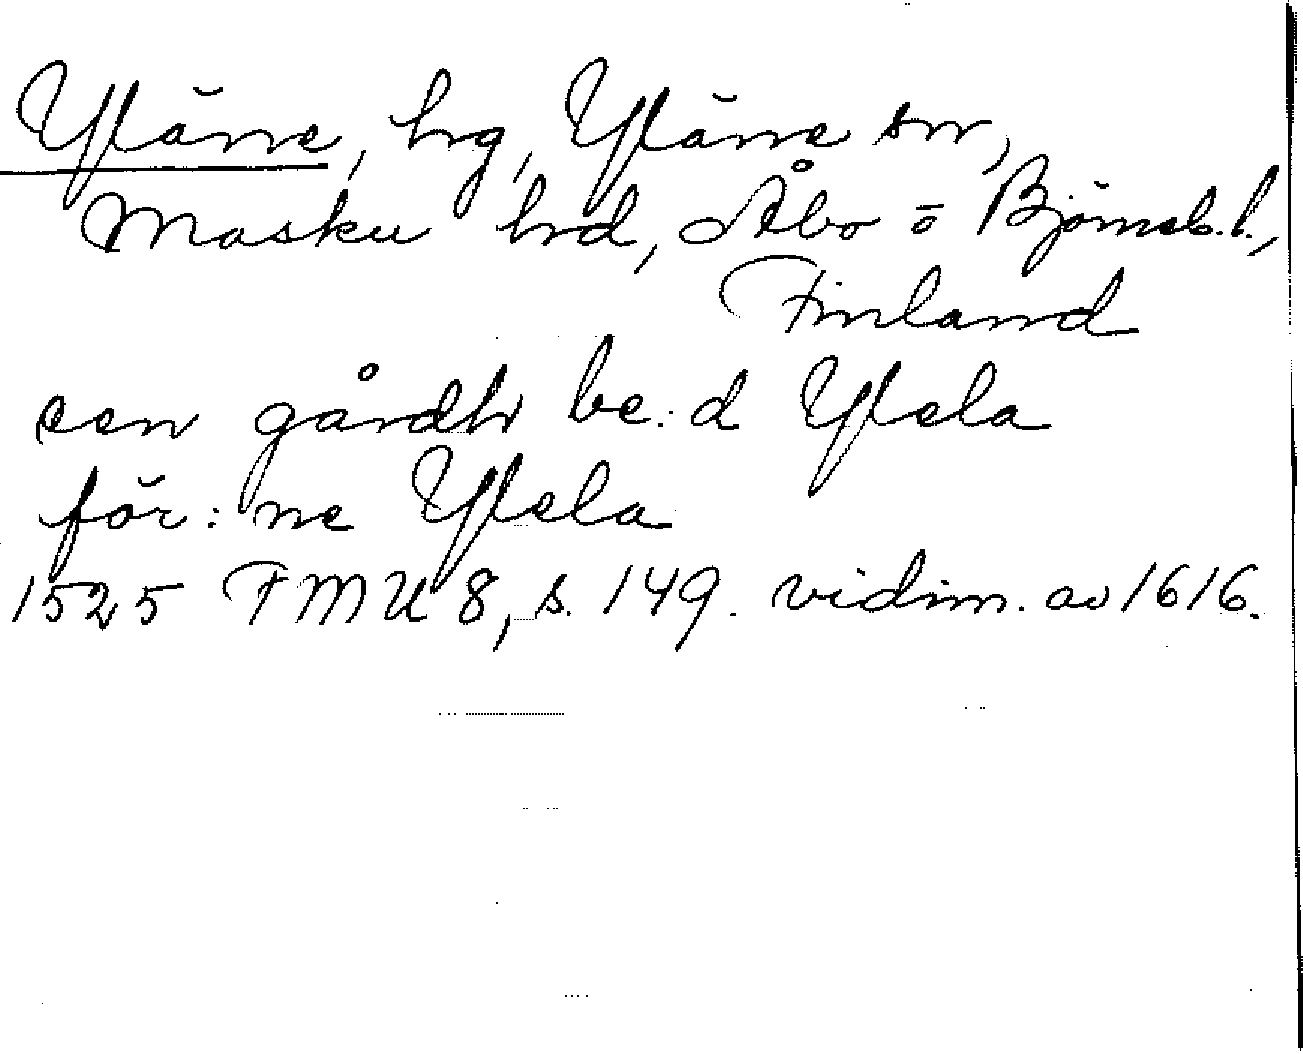 Yläne, hg, Yläne sn,
Masku hrd, Åbo o Björneb. l.,
Finland
een gårdh be:d Ylela
för:ne Ylela
1525 FMU 8, s. 149. vidim. av 1616.